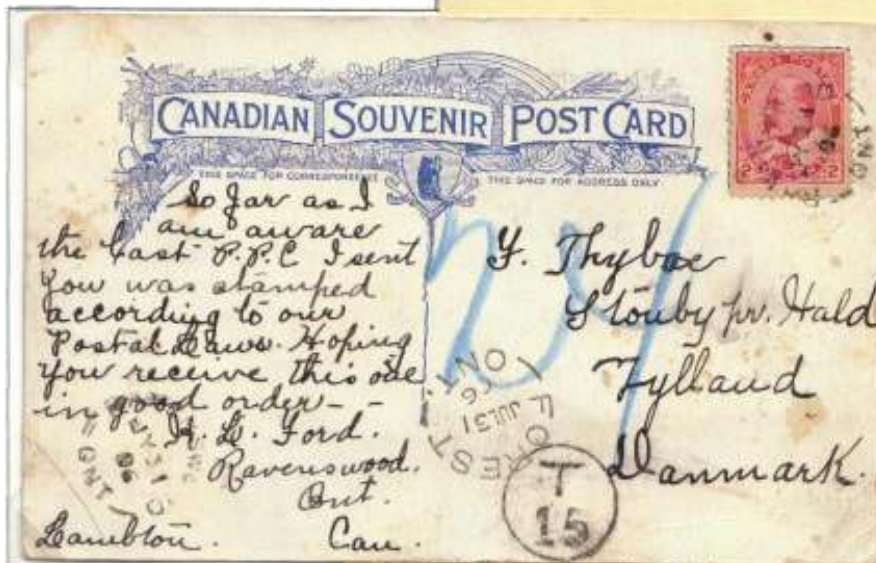 CANADIAN SOUVENIR POST CARD
THIS SPACE FOR CORRESPONDENCE
THIS SPACE FOR ADDRESS ONLY.
So far as I
am aware
the last P.P.C I sent
you was stamped
according to our
Postal Laws. Hoping
you receive this one
in good order - -
H. L. Ford.
Ravenswood.
Ont.
Lambton. Can.
Y. Thyboe
Stouby pr. Hald
Jylland
Danmark.
2 2
FOREST
JUL 31
06
ONT.
T
15
ONT
06